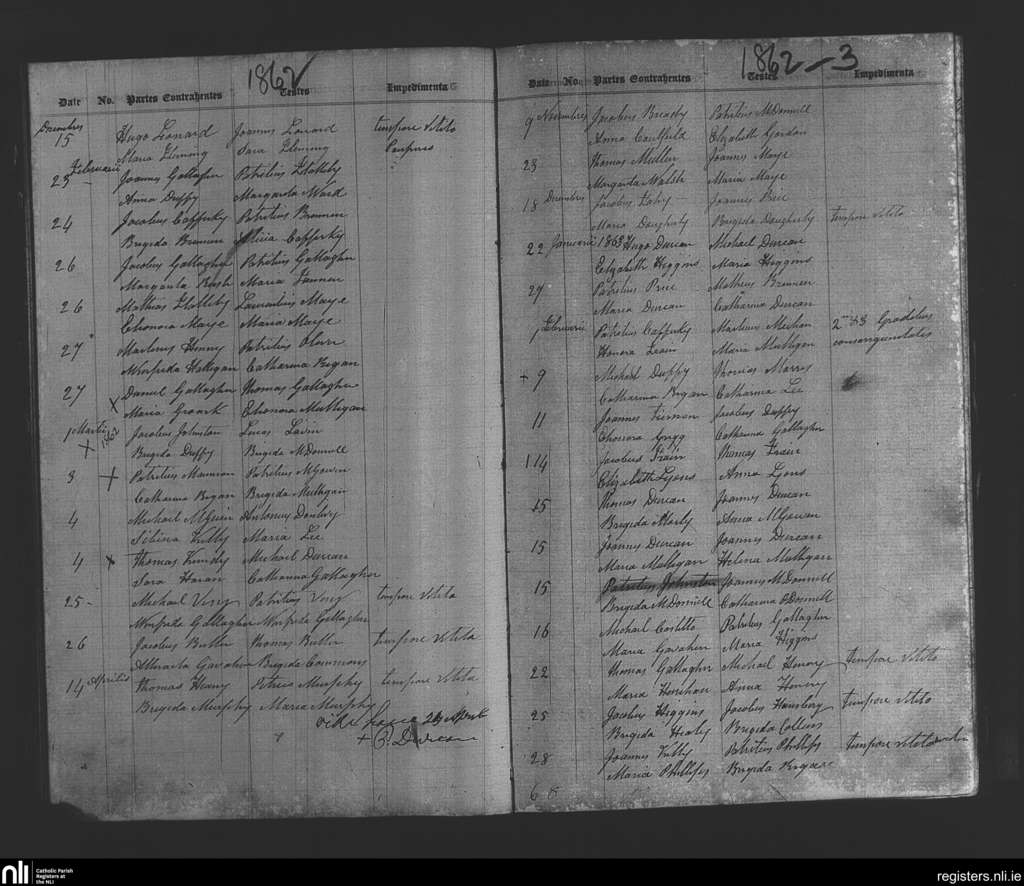 1862
Date No. Partes Contrahentes Testes Impedimenta
Decembris
15 Hugo Lonard Joannes Lonard tempore vetito
Maria Fleming Sara Fleming
Februarii
23 Joannes Gallagher Patritius
Anna Duffy Margarita Ward
24 Jacobus Cafferky Patritius Brennen
Brigida Brennen Alicia Cafferky
26 Jacobus Gallagher Patritius Gallagher
Margarita Rush Maria
26 Mathias Laurentius Maye
Elionora Maye Maria Maye
27 Martinus Henry Patritius
Winifrida Halligan Catharina Regan
27 Daniel Gallagher Thomas Gallagher
X Maria Groark Elionora Mulligan
1 Martii 1862 Jacobus Johnston Lucas Lavin
X Brigida Duffy Brigida McDonnell
3 X Patritius Mannion Patritius McGowen
Catharina Regan Brigida Mulligan
4 Michael Antonius
Sibina Kelly Maria Lee
4 X Thomas Kundy Michael Durcan
Sara Horan Catharina Gallagher
25 - Michael Very Patritius Very tempore vetito
Winifrida Gallagher Winifrida Gallagher
26 Jacobus Butler Thomas Butler tempore vetito
Attracta Gavahen Brigida Commons
14 Aprilis Thomas Henry Patricio Murphy tempore vetito
Brigida Murphy Maria Murphy
26 April
+ P. Durcan
1862-3
Date No. Partes Contrahentes Testes Impedimenta
9 Novembris Jacobus Patritius McDonnell
Anna Caulfield Elizabeth Gordon
23 Thomas Mullen Joannes Maye
Margarita Walsh Maria Maye
18 Decembris Jacobus Joannes Price
Maria Dougherty Brigida Dougherty tempore vetito
22 Januarii 1863 Hugo Durcan Michael Durcan
Elizabeth Higgins Maria Higgins
29 Patritius Price Matheus Brennen
Maria Durcan Catharina Durcan
1 Februarii Patritius Cafferky Martinus Meehan
Honora Maria Mulligan consanguinitatis
+ 9 Michael Duffy Thomas Morris
Catharina Regan Catharina Lee
11 Joannes Tiernon Jacobus Duffy
Elionora Grigg Catharina Gallagher
114 Jacobus Frain Thomas Frain
Elizabeth Lyons Anna Lyons
15 Thomas Durcan Joannes Durcan
Brigida Anna McGowan
15 Joannes Durcan Joannes Durcan
Maria Mulligan Helena Mulligan
15 Patritius Johnston Joannes McDonnell
Brigida McDonnell Catharina McDonnell
16 Michael Costello Patritius Gallagher
Maria Gavahen Maria Higgins
22 Thomas Gallagher Michael Henry tempore vetito
Maria Horohan Anna Henry
25 Jacobus Higgins Jacobus tempore vetito
Brigida Healy Brigida Collins
28 Joannes Kelly Patritius Phillips tempore vetito
Maria Phillips Brigida
nli Catholic Parish
Registers at
the NLI
registers.nli.ie